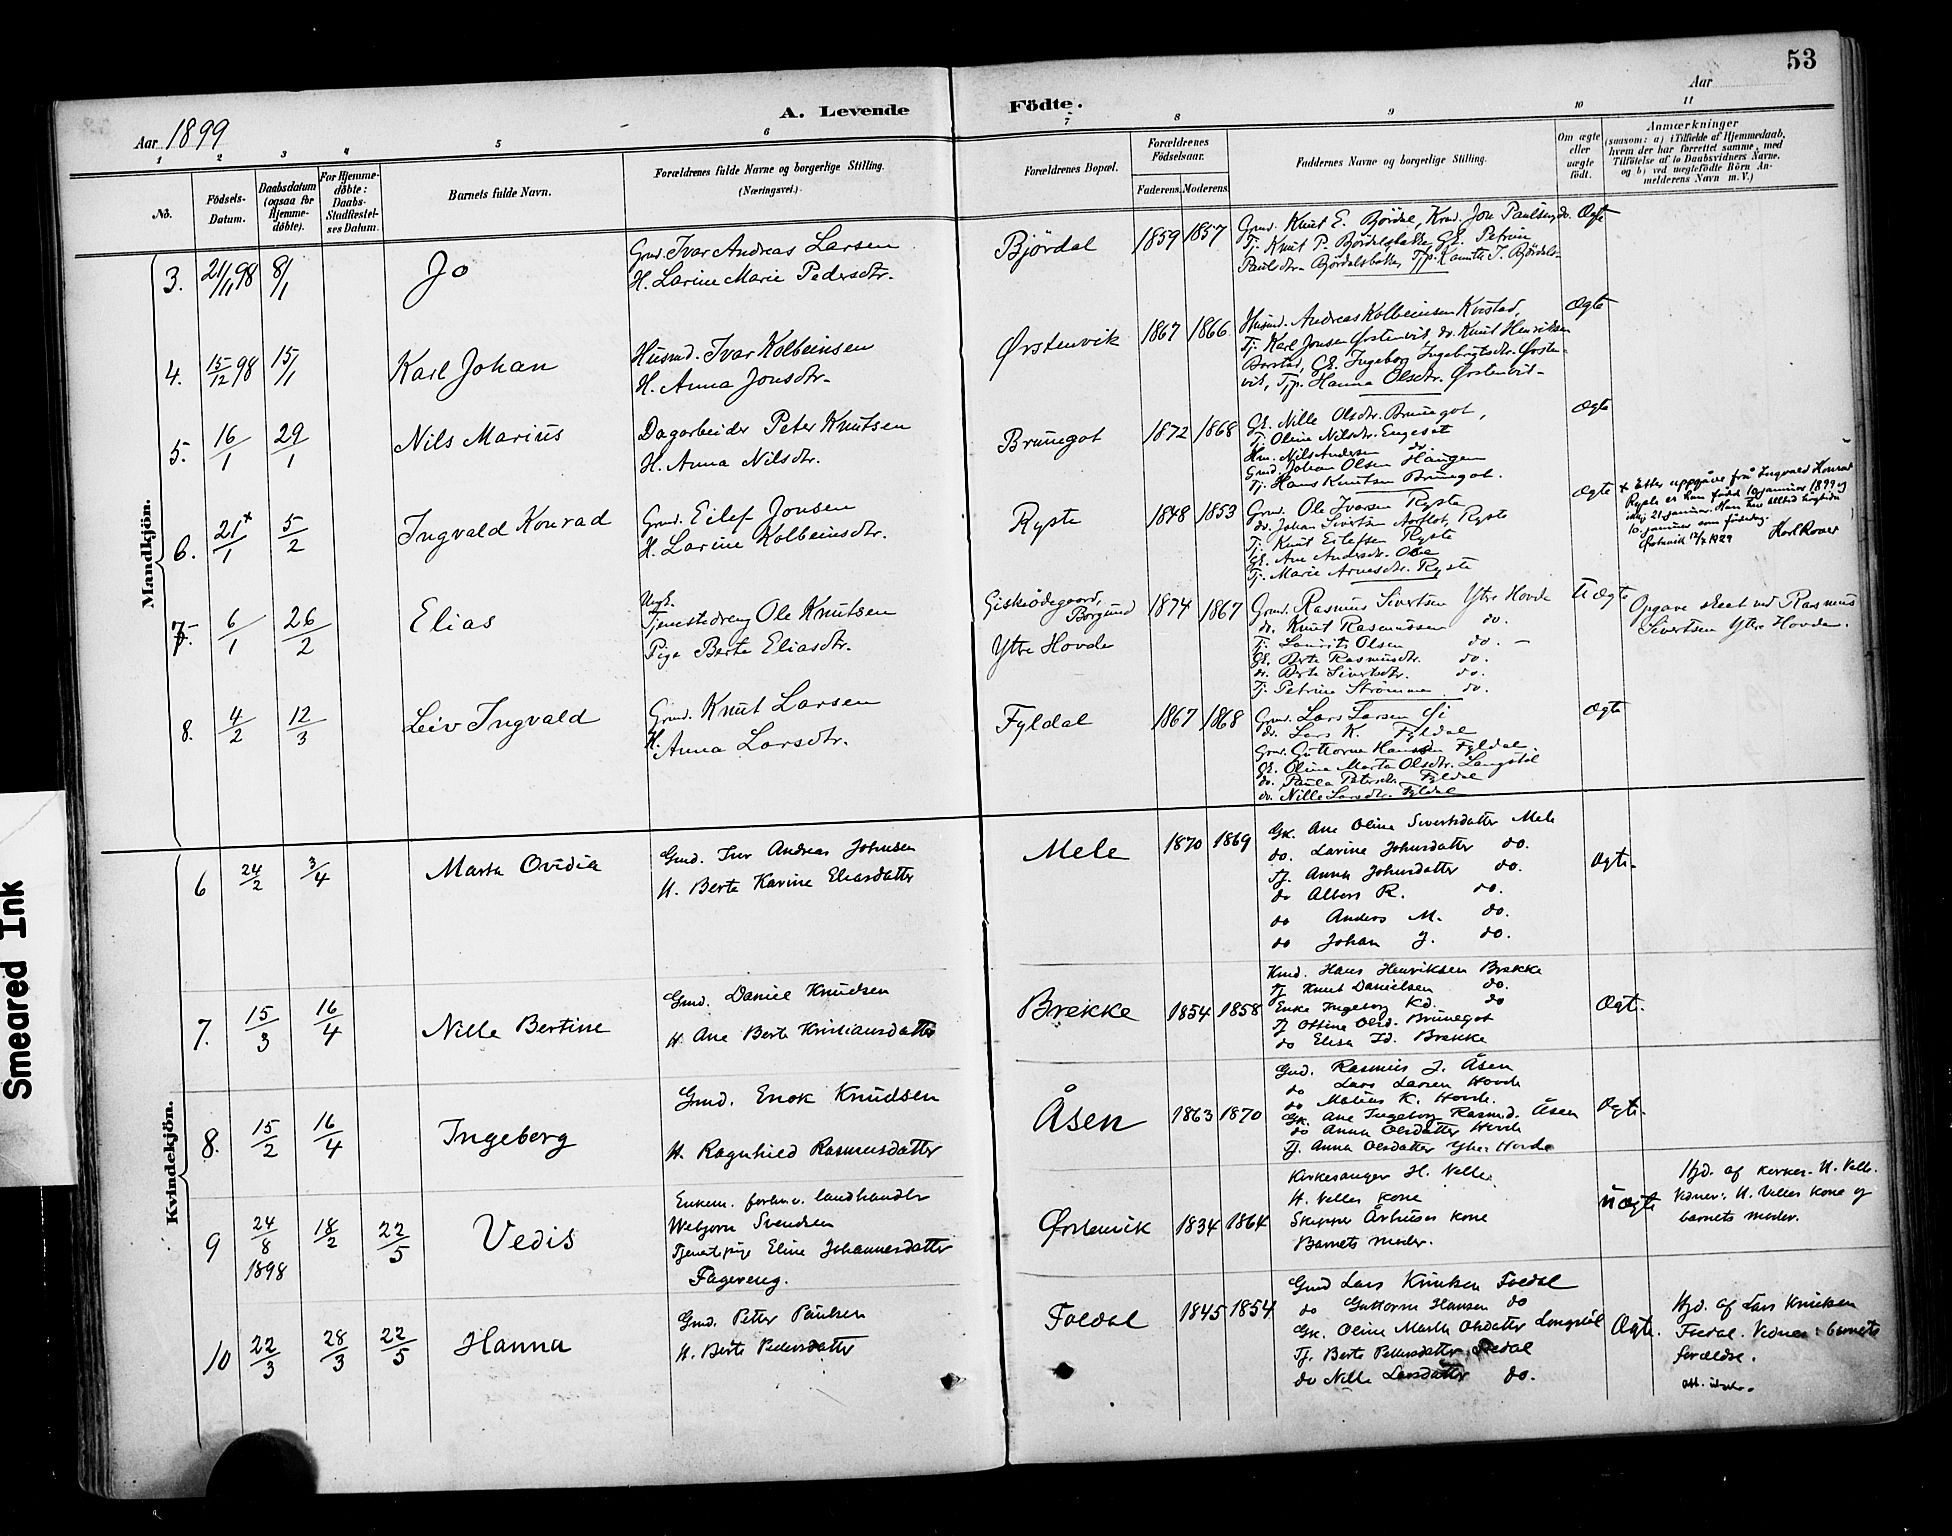 53
A. Levende Födte.
Aar 1899
Aar
1 2 3 4 5 6 7 8 9 10 11
No.
Födsels-Datum.
Daabsdatum (ogsaa for Hjemme-döbte).
For Hjemme-döbte: Daabs-Stadfæstel-ses Datum.
Barnets fulde Navn.
Forældrenes fulde Navne og borgerlige Stilling. (Næringsvei).
Forældrenes Bopæl.
Forældrenes Födselsaar.
Faderens. Moderens.
Faddernes Navne og borgerlige Stilling.
Om ægte eller uægte födt.
Anmærkninger
(saasom: a) i Tilfælde af Hjemmedaab, hvem der har forrettet samme, med Tilföielse af to Daabsvidners Navne, og b) ved uægtefödte Börn An-melderens Navn m. V.)
Mandkjön.
3. 21/11 98 8/1 Jo
Grmd. Ivar Andreas Larsen
H. Larine Marie Pedersdtr.
Bjørdal 1859 1857
Grmd. Knut E. Bjørdal, Krmd. Jon Paulsen do.
Tj. Knut P. Bjørdalsbakke, Gk. Petrine
Paulsdtr. Bjørdalsbakke, Tjp. J. Bjørdals-
Ægte
4. 15/12 98 15/1 Karl Johan
Husmd. Ivar Kolbeinsen
H. Anna Jonsdtr.
Ørstenvik 1867 1866
Husmd. Andreas Kolbeinsen Kvistad,
Tj. Karl Jonsen Ørstenvik, do. Knut Henriksen
Barstad, Gk. Ingeborg Ingebrigtsdtr. Ørsten-
vik, Tjp. Hanna Olsdtr. Ørstenvik-
Ægte
5. 16/1 29/1 Nils Marius
Dagarbeider Peter Knutsen
H. Anna Nilsdtr.
Brungot 1872 1868
Gk. Nille Olsdtr. Brungot,
Tj. Oline Nilsdtr. Engeset
Hm. Nils Andersen do
Grmd. Johan Olsen Haugen
Tj. Hans Knutsen Brungot.
Ægte
6. 21+/1 5/2 Ingvald Konrad
Grmd. Eilef Jonsen
H. Larine Kolbeinsdtr.
Ryste 1848 1853
Grmd. Ole Ivarsen Ryste
do. Johan Sivertsen Aarflot, Ryste
Tj. Knut Eilefsen Ryste
Gk. Ane Andersdtr. Ose
Tj. Marie Arnesdtr. Ryste
Ægte
+ Etter uppgåve frå Ingvald Konrad
Ryste er han fødd 10 januar 1899 og
ikkj 21 januar. Han hev alltid
10 januar som fødedag.
Karl Rover
7. 6/1 26/2 Elias
Ungk.
Tjenestedreng Ole Knutsen
Pige Berte Eliasdtr.
Giskeødegaard,
Borgund
Ytre Hovde
1874 1867
Grmd. Rasmus Sivertsen Ytre Hovde
do. Knut Rasmussen do.
Tj. Laurits Olsen do. -
Gk. Berte Rasmusdtr. do.
do. Berte Sivertsdtr. do.
Tj. Petrine Strømme do.
Uægte
Opgave skeet ved Rasmus
Sivertsen Ytre Hovde.
8. 4/2 12/3 Leiv Ingvald
Grmd. Knut Larsen
H. Anna Larsdtr.
Fyldal 1867 1868
Grmd. Lars Larsen Øi
do. Lars K. Fyldal
Grmd. Guttorm Hansen Fyldal.
Gk. Oline Marta Olsdtr. Langstøl
do. Paula Petersdtr. Fyldal
do. Nille Larsdtr. Fyldal
Ægte
Kvindekjön.
6 24/2 3/4 Marta Ovidia
Gmd. Iver Andreas Johnsen
H. Berte Karine Eliasdatter
Mele 1870 1869
Gk. Ane Oline Sivertsdatter Mele
do. Larine Johnsdatter do.
Tj. Anna Johnsdatter do.
do Albert R. do.
do Anders M. do.
do Johan J. do.
Ægte.
7. 15/3 16/4 Nille Bertine
Gmd. Daniel Knudsen
H. Ane Berte Kristiansdatter
Brekke 1854 1858
Kmd. Hans Henriksen Brekke
Tj Knut Danielsen do.
Enke Ingeborg Kd. do
Tj Ottine Olsd. Brunegot
do Elisa Id. Brekke
Ægt.
8. 15/2 16/4 Ingeborg
Gmd. Enok Knudsen
H. Ragnhild Rasmusdatter
Åsen 1863 1870
Gmd. Rasmus J. Åsen
do Lars Larsen Hovde
do Mateus K. Hovde.
Gk. Ane Ingeborg Rasmd. Åsen
do Anna Olsdatter Hovde
Tj. Anna Olsdatter Ytre Hovde
Ægte.
9 24/8 1898 18/2 22/5 Vedis
Enkem. forhv. landhandler
Webjørn Svendsen
Tjenestpige Eline Johannesdatter
Fagereng.
Ørstenvik 1834 1864
Kirkesanger H. Velle
H. Velles kone
Skipper Århuses kone
Barnets moder.
Uægte
Hjd. af kirkes. H. Velle.
Vidner: H. Velles kone og
barnets moder.
10 22/3 28/3 22/5 Hanna
Gmd. Petter Paulsen
H. Berte Pettersdatter
Foldal 1845 1854
Gmd Lars Knutsen Foldal
do Guttorm Hansen do
Gk. Oline Marta Olsdatter Longstøl
Tj. Berte Pettersdatter
do Nille Larsdatter do.
Ægte.
Hjd. af Lars Knutsen
Foldal. Vidner: barnets
forældre.
Smeared Ink